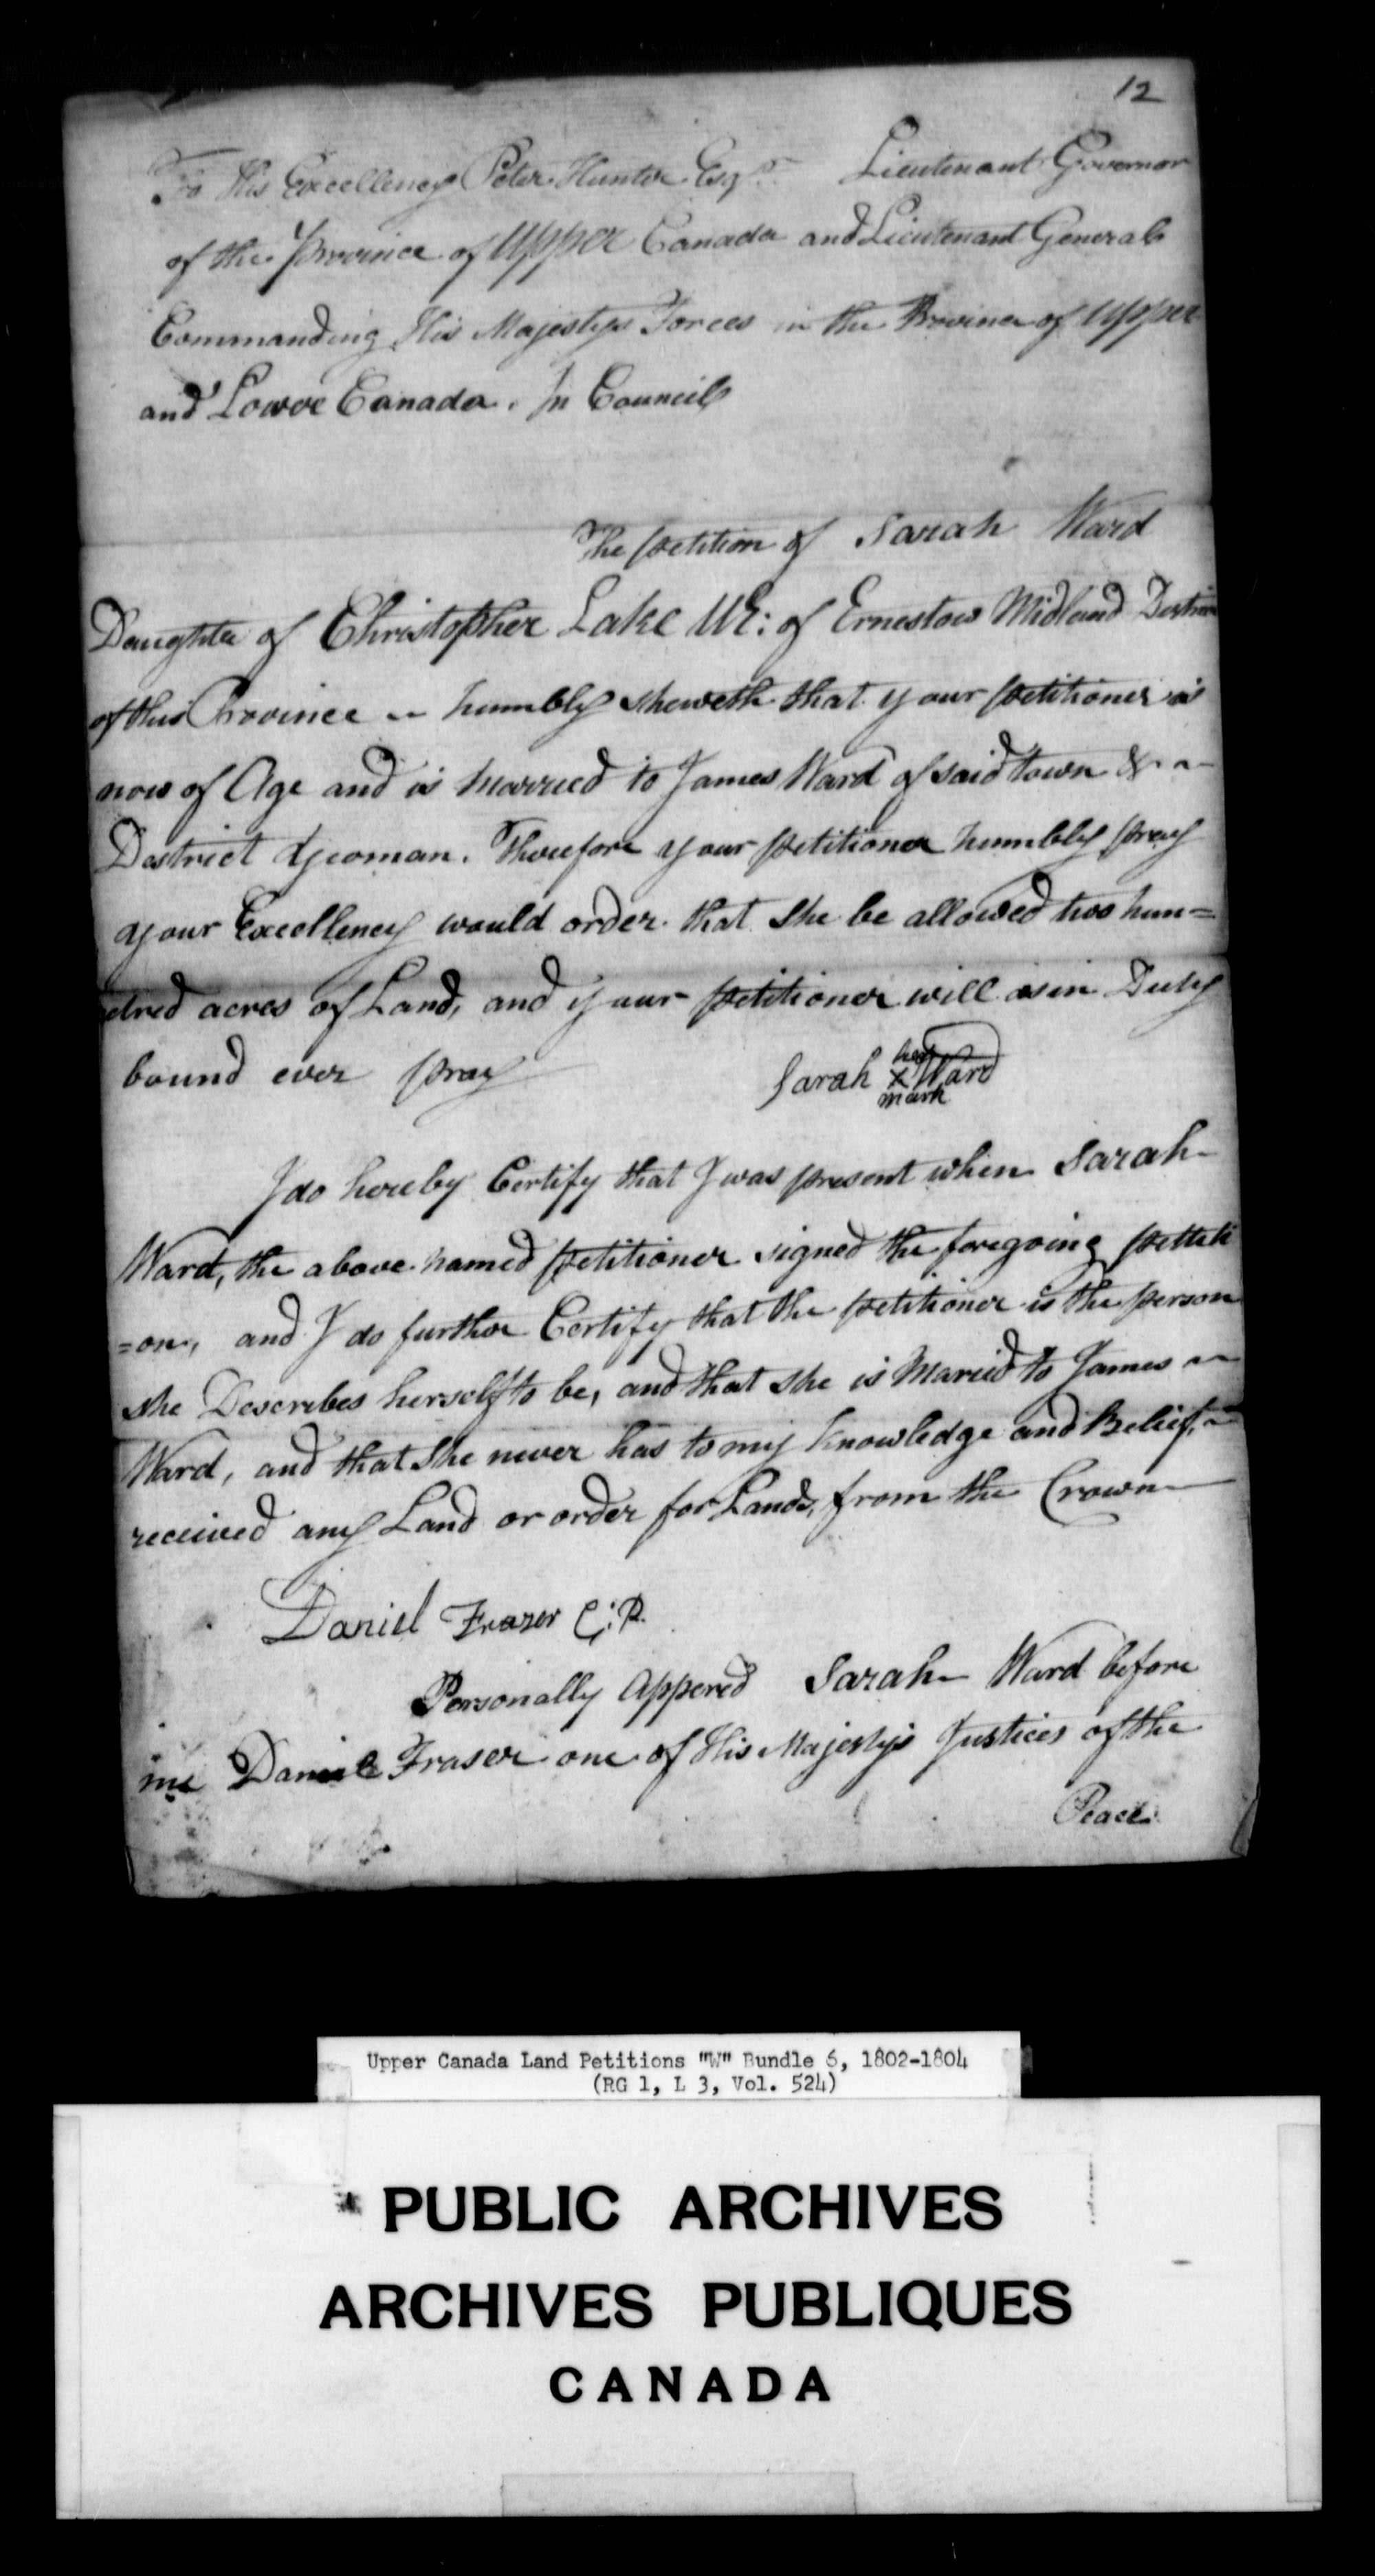 12
To His Excellency Peter Hunter Esqr. Lieutenant Governor
of the province of Upper Canada and Lieutenant General
Commanding His Majestys Forces in the Province of Upper
and Lower Canada. In Council
The petition of Sarah Ward
Daughter of Christopher Lake UE: of Ernestow Midland District
of this Province humbly sheweth that your petitioner is
now of Age and is married to James Ward of said town &
District yeoman. Therefore your petitioner humbly pray
your Excellency would order that She be allowed two hun=
dred acres of Land, and your petitioner will as in Duty
bound ever pray
her
Sarah x Ward
mark
I do hereby Certify that I was present when Sarah
Ward, the above named petitioner signed the foregoing petteti
=on, and I do further Certify that the petitioner is the person
she Describes herself to be, and that she is Maried to James
Ward, and that She never has to my knowledge and Belief,
received any Land or order for Lands, from the Crown
Daniel Frazer C:P.
Personally Appered Sarah Ward before
me Daniel Fraser one of His Majestys Justices of the
Peace
Upper Canada Land Petitions "W" Bundle 6, 1802-1804
(RG 1, L 3, Vol. 524)
PUBLIC ARCHIVES
ARCHIVES PUBLIQUES
CANADA